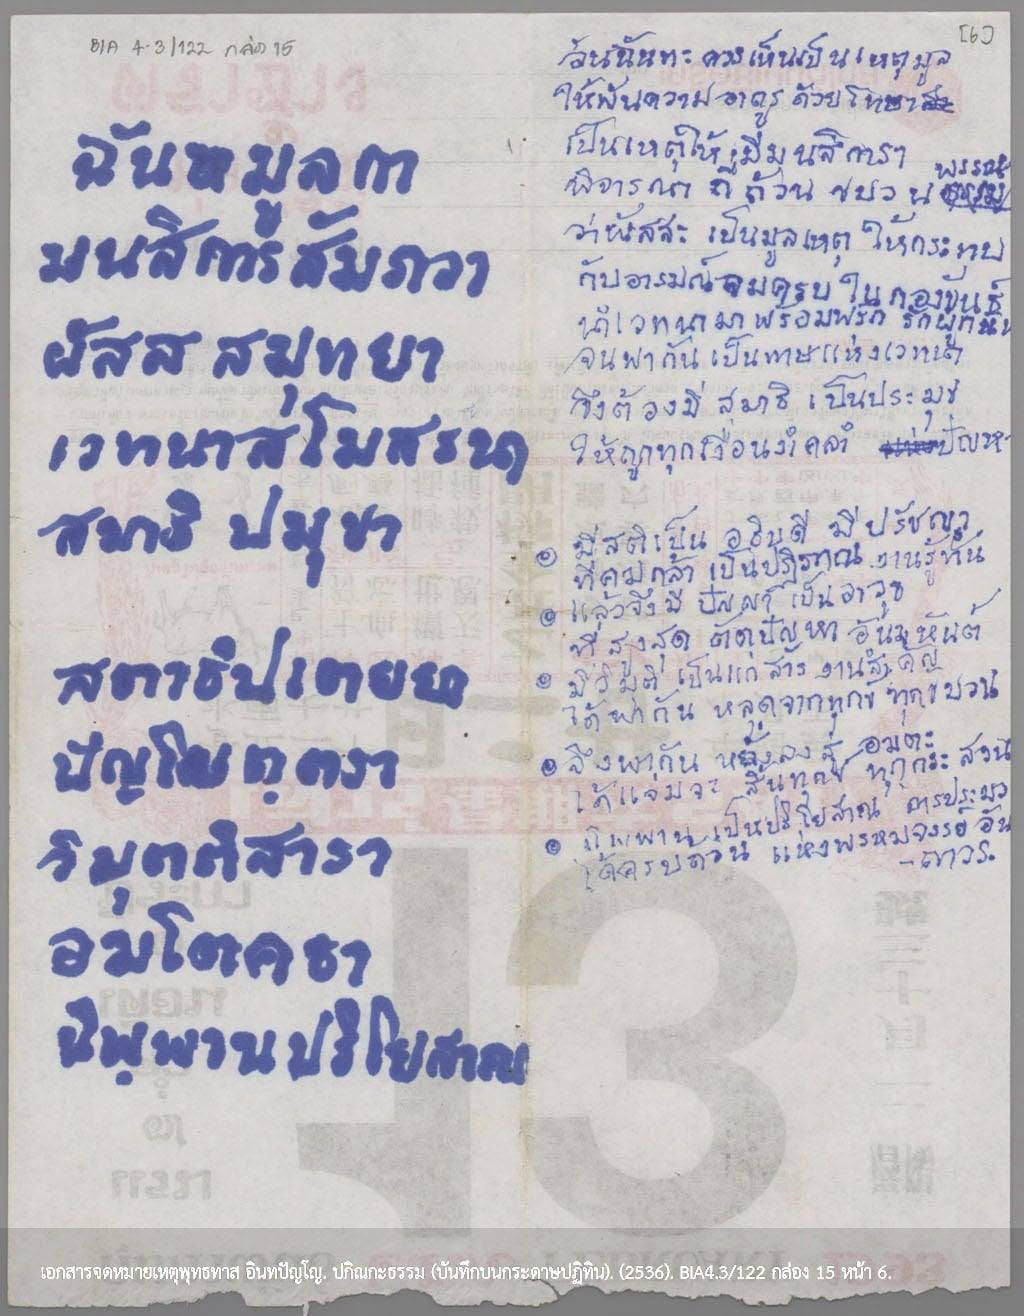 BIA 4.3/122 กล่อง 15
[6]
ฉันทมูลกา
มนสิการสัมภวา
ผัสสสมุทยา
เวทนาสโมสรณา
สมาธิปมุขา
สตาธิปเตยยา
ปัญโญตฺตรา
วิมุตติสารา
อมโตคธา
นิพฺพานปริโยสาณ
อันฉันทะ ควรเห็นเป็น เหตุมูล
ให้พ้นความอาดูร ด้วย
เป็นเหตุให้ มีมนสิการา
พิจารณา ถี่ถ้วน ขบวน พรรณ
ว่าผัสสะ เป็นมูลเหตุ ให้กระทบ
กับอารมณ์ ครบ ในกองขันธ์
นำเวทนามา พร้อมพรัก รักผูกพัน
จนพากัน เป็นทาษแห่งเวทนา
จึงต้องมี สมาธิ เป็นประมุข
ให้ถูกทุกเงื่อนงำ ปัญหา
๏ มีสติเป็น อธิบดี มีปรัชญา
ที่คมกล้า เป็น งานรู้ทัน
๏ แล้วจึงมี ปัญญา เป็นอาวุธ
ที่สูงสุด ตัดปัญหา อันมหันต์
๏ มีวิมุติ เป็นแก่สาร งานสำคัญ
ได้พากัน หลุดจากทุกข์ ทุกขบวน
๏ จึงพากัน หยั่งลงสู่ อมตะ
ได้ สิ้นทุกข์ ทุกกระ
๏ นิพพาน เป็นปริโยสาณ การประมวล
ได้ครบถ้วน แห่งพรหมจรรย์ อัน
- ถาวร.
เอกสารจดหมายเหตุพุทธทาส อินทปัญโญ. ปกิณกะธรรม (บันทึกบนกระดาษปฏิทิน). (2536). BIA4.3/122 กล่อง 15 หน้า 6.